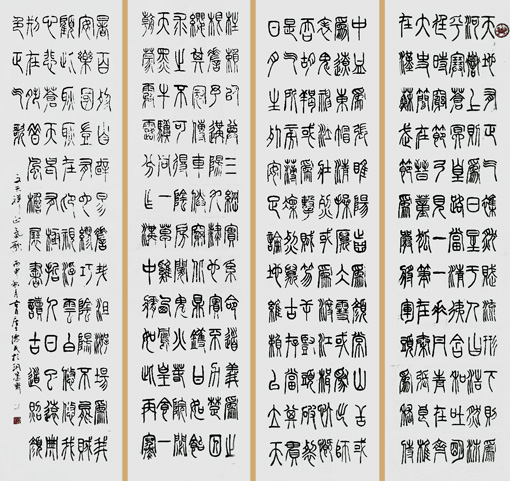 天地有正氣雜然賦流形下則為
河嶽上則為日星於人曰浩然沛
乎塞蒼冥皇路當清夷含和吐明
庭時窮節乃見一一垂丹青在齊
太史簡在晉董狐筆在秦張良椎
在漢蘇武節為嚴將軍頭為嵇侍
中血為張睢陽齒為顏常山舌或
為遼東帽清操厲冰雪或為出師
表鬼神泣壯烈或為渡江楫慷慨
吞胡羯或為擊賊笏逆豎頭破裂
是氣所磅礴凜烈萬古存當其貫
日月生死安足論地維賴以立天
柱賴以尊三綱實繫命道義為之
根嗟予遘陽九隸也實不力楚囚
纓其冠傳車送窮北鼎鑊甘如飴
求之不可得陰房闐鬼火春院閟
天黑牛驥同一皂雞棲鳳凰食一
朝蒙霧露分作溝中瘠如此再寒
暑百沴自辟易嗟哉沮洳場為我
安樂國豈有他繆巧陰陽不能賊
顧此耿耿在仰視浮雲白悠悠我
心悲蒼天曷有極哲人日已遠典
刑在夙昔風簷展書讀古道照顏
色正气歌
文天祥正氣歌丙申秋月書